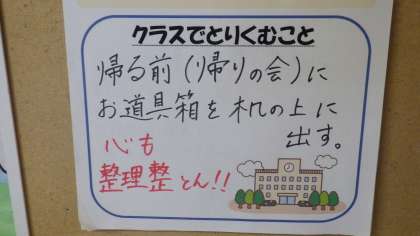 クラスでとりくむこと
帰る前(帰りの会)に
お道具箱を机の上に
出す。
心も
整理整とん!!